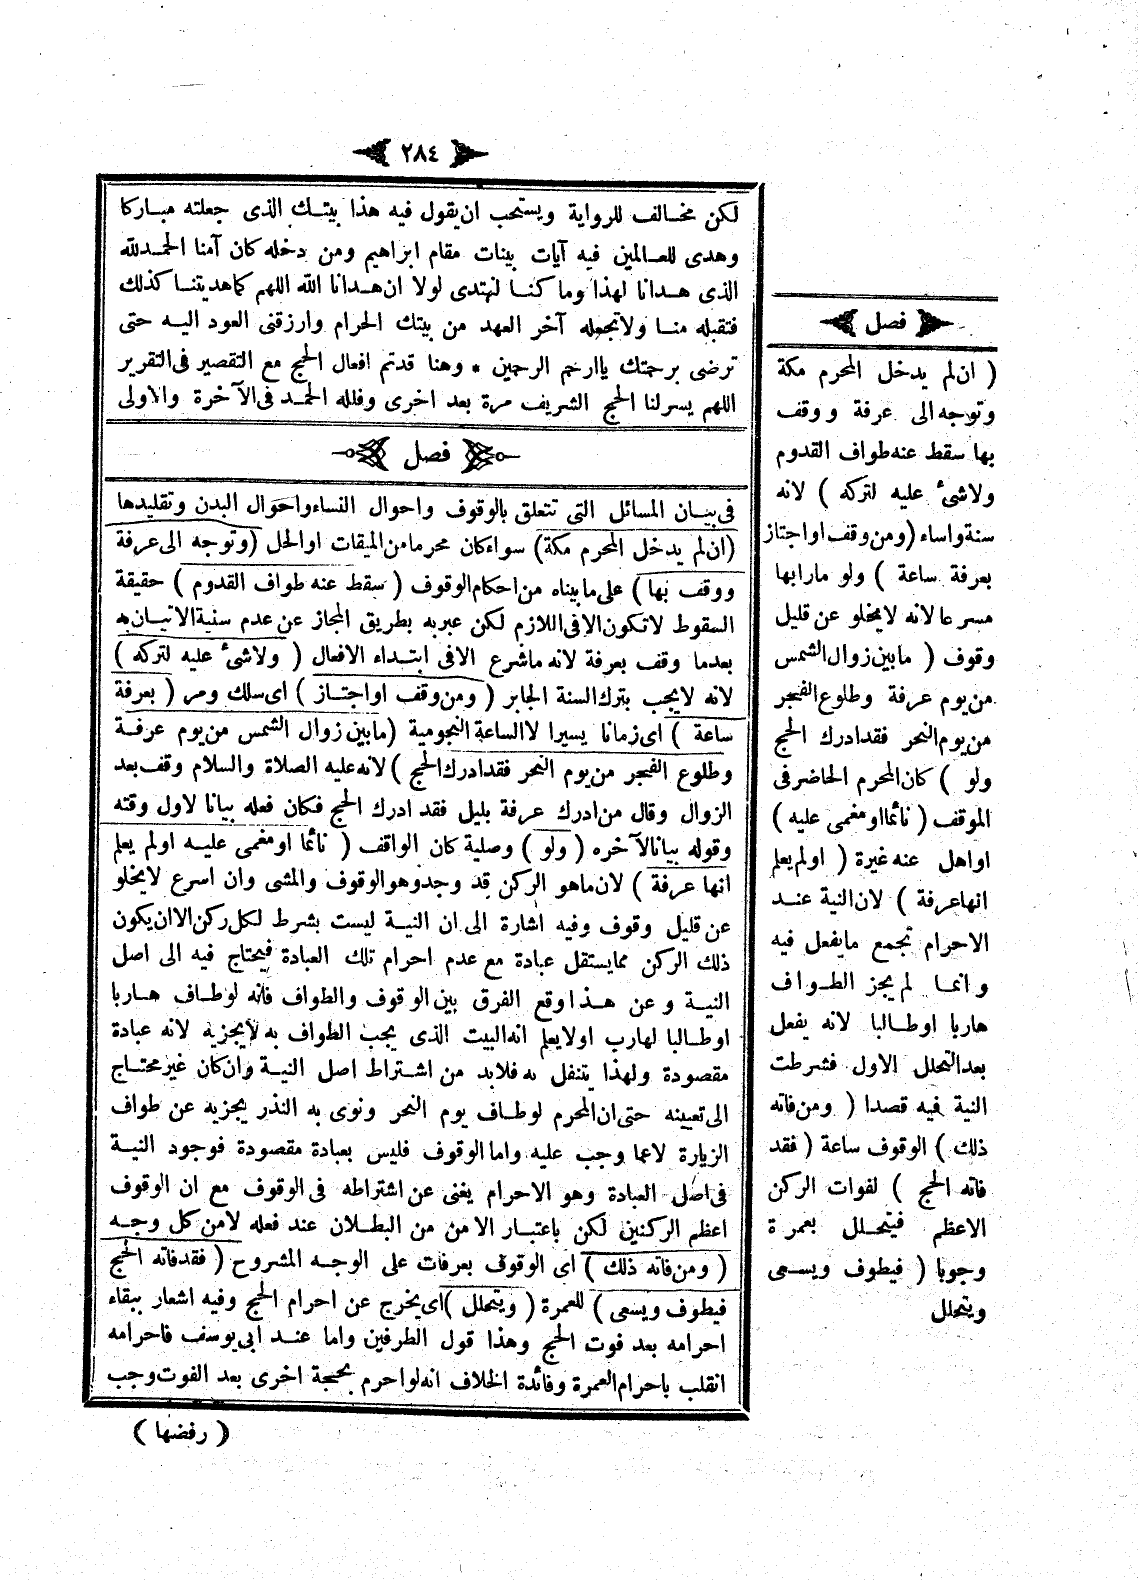 ٢٨٤
لكن مخالف للرواية ويستحب ان يقول فيه هذا بيتك الذى جعلته مباركا
وهدى للعالمين فيه آيات بينات مقام ابراهيم ومن دخله كان آمنا الحمدلله
الذى هدانا لهذا وما كنا لنهتدى لولا ان هدانا الله اللهم كما هديتنا كذلك
فتقبله منا ولا تجعله آخر العهد من بيتك الحرام وارزقنى العود اليه حتى
ترضى برحمتك ياارحم الرحمين * وهنا قدتم افعال الحج مع التقصير فى التقرير
اللهم يسرلنا الحج الشريف مرة بعد اخرى وفلله الحمد فى الآخرة والاولى
فصل
فى بيان المسائل التى تتعلق بالوقوف واحوال النساء واحوال البدن وتقليدها
(ان لم يدخل المحرم مكة) سواء كان محرما من الميقات اوالحل (وتوجه الى عرفة
ووقف بها) على مابيناه من احكام الوقوف (سقط عنه طواف القدوم) حقيقة
السقوط لاتكون الا فى اللازم لكن عبربه بطريق المجاز عن عدم سنية الاتيان به
بعدما وقف بعرفة لانه ماشرع الا فى ابتداء الافعال (ولاشئ عليه لتركه)
لانه لايجب بترك السنة الجابر (ومن وقف او اجتاز) اى سلك ومر (بعرفة
ساعة) اى زمانا يسيرا لا الساعة النجومية (مابين زوال الشمس من يوم عرفة
وطلوع الفجر من يوم النحر فقدادرك الحج) لانه عليه الصلاة والسلام وقف بعد
الزوال وقال من ادرك عرفة بليل فقد ادرك الحج فكان فعله بيانا لاول وقته
وقوله بيانا لآخره (ولو) وصلية كان الواقف (نائما او مغمى عليه اولم يعلم
انها عرفة) لان ماهو الركن قد وجد وهو الوقوف والمشى وان اسرع لايخلو
عن قليل وقوف وفيه اشارة الى ان النية ليست بشرط لكل ركن الا ان يكون
ذلك الركن مما يستقل عبادة مع عدم احرام تلك العبادة فيحتاج فيه الى اصل
النية وعن هذا وقع الفرق بين الوقوف والطواف فانه لوطاف هاربا
اوطالبا لهارب اولايعلم انه البيت الذى يجب الطواف به لايجزيه لانه عبادة
مقصودة ولهذا يتنفل به فلابد من اشتراط اصل النية وان كان غير محتاج
الى تعيينه حتى ان المحرم لوطاف يوم النحر ونوى به النذر يجزيه عن طواف
الزيارة لاعما وجب عليه واما الوقوف فليس بعبادة مقصودة فوجود النية
فى اصل العبادة وهو الاحرام يغنى عن اشتراطه فى الوقوف مع ان الوقوف
اعظم الركنين لكن باعتبار الامن من البطلان عند فعله لامن كل وجه
(ومن فاته ذلك) اى الوقوف بعرفات على الوجه المشروح (فقدفاته الحج
فيطوف ويسعى) للعمرة (ويتحلل) اى يخرج عن احرام الحج وفيه اشعار ببقاء
احرامه بعد فوت الحج وهذا قول الطرفين واما عند ابى يوسف فاحرامه
انقلب باحرام العمرة وفائدة الخلاف انه لو احرم بحجة اخرى بعد الفوت وجب
(رفضها)
فصل
(ان لم يدخل المحرم مكة
وتوجه الى عرفة ووقف
بها سقط عنه طواف القدوم
ولاشئ عليه لتركه) لانه
سنة واساء (ومن وقف او اجتاز
بعرفة ساعة) ولو مارا بها
مسرعا لانه لايخلو عن قليل
وقوف (مابين زوال الشمس
من يوم عرفة وطلوع الفجر
من يوم النحر فقدادرك الحج
ولو) كان المحرم الحاضر فى
الموقف (نائما او مغمى عليه)
اواهل عنه غيرة (اولم يعلم
انها عرفة) لان النية عند
الاحرام تجمع مايفعل فيه
وانما لم يجز الطواف
هاربا اوطالبا لانه يفعل
بعد التحلل الاول فشرطت
النية فيه قصدا (ومن فاته
ذلك) الوقوف ساعة (فقد
فاته الحج) لفوات الركن
الاعظم فيتحلل بعمرة
وجوبا (فيطوف ويسعى
ويتحلل